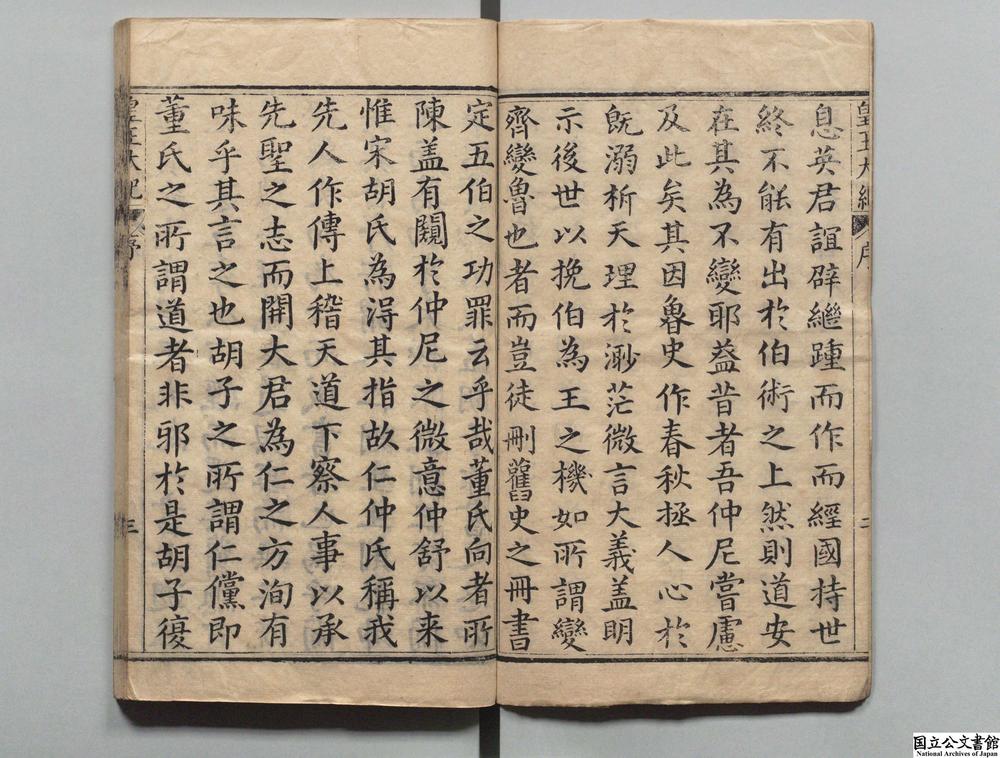 皇王大紀 序 二
息英君誼辟繼踵而作而經國持世
終不能有出於伯術之上然則道安
在其為不變耶盖昔者吾仲尼嘗慮
及此矣其因魯史作春秋拯人心於
既溺析天理於渺茫微言大義盖明
示後世以挽伯為王之機如所謂變
齊變魯也者而豈徒刪舊史之冊書
定五伯之功罪云乎哉董氏向者所
陳盖有闖於仲尼之微意仲舒以来
惟宋胡氏為淂其指故仁仲氏稱我
先人作傳上稽天道下察人事以承
先聖之志而開大君為仁之方洵有
味乎其言之也胡子之所謂仁儻即
董氏之所謂道者非邪於是胡子復
皇王大紀 序 三
国立公文書館
National Archives of Japan